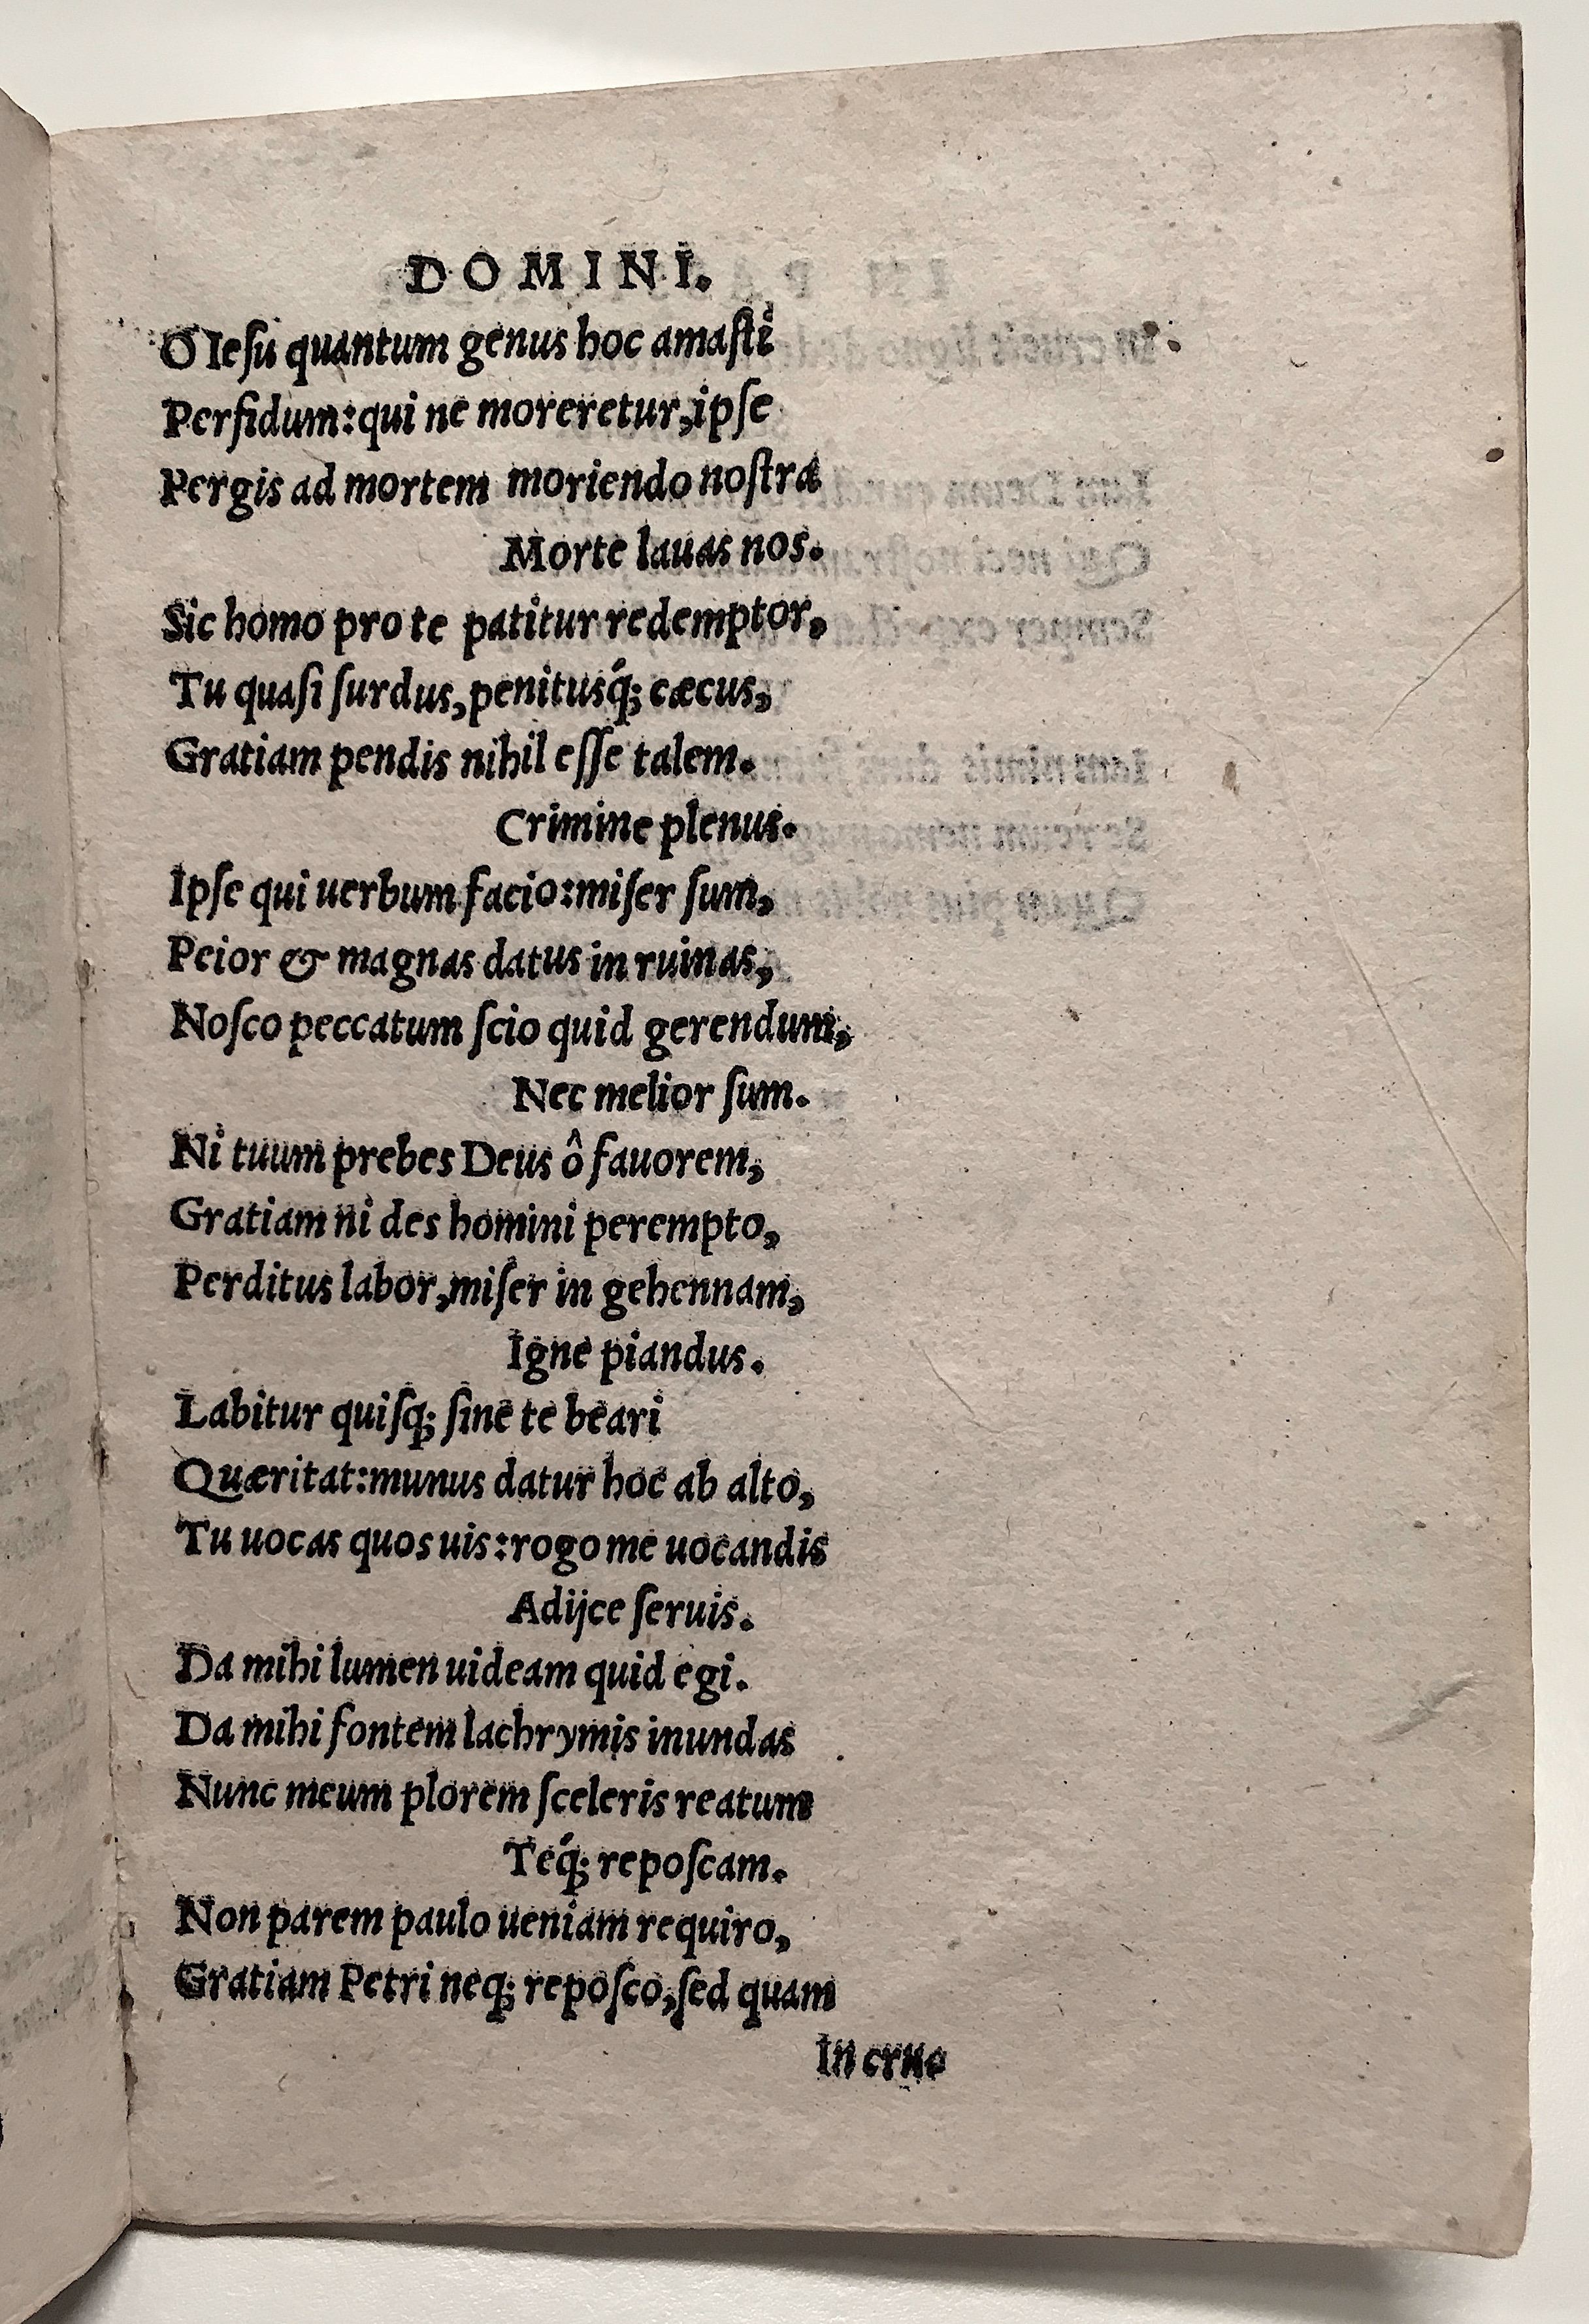 DOMINI.
O Iesu quantum genus hoc amasti
Perfidum:qui ne moreretur,ipse
Pergis ad mortem moriendo nostra
Morte lauas nos.
Sic homo pro te patitur redemptor,
Tu quasi surdus,penitusq́; cæcus,
Gratiam pendis nihil esse talem.
Crimine plenus.
Ipse qui uerbum facio:miser sum,
Peior & magnas datus in ruinas,
Nosco peccatum scio quid gerendum,
Nec melior sum.
Ni tuum prebes Deus ô fauorem,
Gratiam ni des homini perempto,
Perditus labor,miser in gehennam,
Igne piandus.
Labitur quisq; sine te beari
Quæritat:munus datur hoc ab alto,
Tu uocas quos uis:rogo me uocandis
Adijce seruis.
Da mihi lumen uideam quid egi.
Da mihi fontem lachrymis inundas
Nunc meum plorem sceleris reatum
Teq́; reposcam.
Non parem paulo ueniam requiro,
Gratiam Petri neq; reposco,sed quam
In cruc